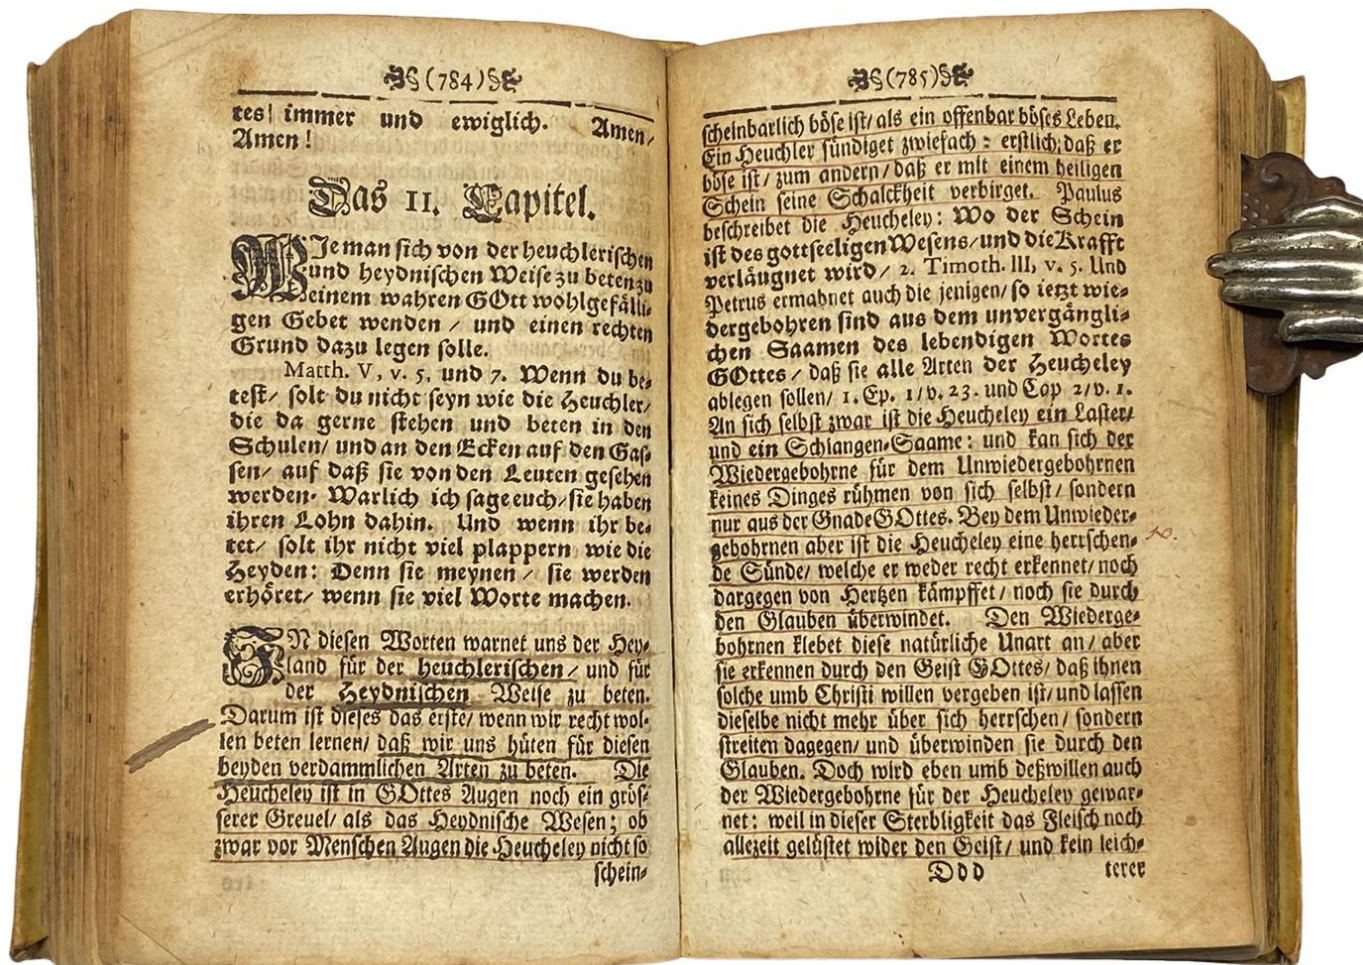 (784)
tes/ immer und ewiglich. Amen/
Amen!
Das II. Capitel.
WIe man sich von der heuchlerischen
und heydnischen Weise zu beten zu
einem wahren GOtt wohlgefälli-
gen Gebet wenden / und einen rechten
Grund dazu legen solle.
Matth. V, v. 5. und 7. Wenn du be-
test/ solt du nicht seyn wie die Heuchler/
die da gerne stehen und beten in den
Schulen/ und an den Ecken auf den Gas-
sen/ auf daß sie von den Leuten gesehen
werden. Warlich ich sage euch/ sie haben
ihren Lohn dahin. Und wenn ihr be-
tet/ solt ihr nicht viel plappern wie die
Heyden: Denn sie meynen / sie werden
erhöret/ wenn sie viel Worte machen.
IN diesen Worten warnet uns der Hey-
land für der heuchlerischen / und für
der Heydnischen Weise zu beten.
Darum ist dieses das erste/ wenn wir recht wol-
len beten lernen/ daß wir uns hüten für diesen
beyden verdammlichen Arten zu beten. Die
Heucheley ist in GOttes Augen noch ein grös-
serer Greuel/ als das Heydnische Wesen; ob
zwar vor Menschen Augen die Heucheley nicht so
schein-
(785)
scheinbarlich böse ist/ als ein offenbar böses Leben.
Ein Heuchler sündiget zwiefach: erstlich, daß er
böse ist/ zum andern/ daß er mit einem heiligen
Schein seine Schalckheit verbirget. Paulus
beschreibet die Heucheley: Wo der Schein
ist des gottseeligen Wesens/ und die Krafft
verläugnet wird/ 2. Timoth. III, v. 5. Und
Petrus ermahnet auch die jenigen/ so ietzt wie-
dergebohren sind aus dem unvergängli-
chen Saamen des lebendigen Wortes
GOttes / daß sie alle Arten der Heucheley
ablegen sollen/ 1. Ep. 1/ v. 23. und Cap 2/ v. 1.
An sich selbst zwar ist die Heucheley ein Laster/
und ein Schlangen-Saame: und kan sich der
Wiedergebohrne für dem Unwiedergebohrnen
keines Dinges rühmen von sich selbst/ sondern
nur aus der Gnade GOttes. Bey dem Unwieder-
gebohrnen aber ist die Heucheley eine herrschen-
de Sünde/ welche er weder recht erkennet/ noch
dargegen von Hertzen kämpffet/ noch sie durch
den Glauben überwindet. Den Wiederge-
bohrnen klebet diese natürliche Unart an/ aber
sie erkennen durch den Geist GOttes/ daß ihnen
solche umb Christi willen vergeben ist/ und lassen
dieselbe nicht mehr über sich herrschen/ sondern
streiten dagegen/ und überwinden sie durch den
Glauben. Doch wird eben umb deßwillen auch
der Wiedergebohrne für der Heucheley gewar-
net: weil in dieser Sterbligkeit das Fleisch noch
allezeit gelüstet wider den Geist/ und kein leich-
Ddd terer